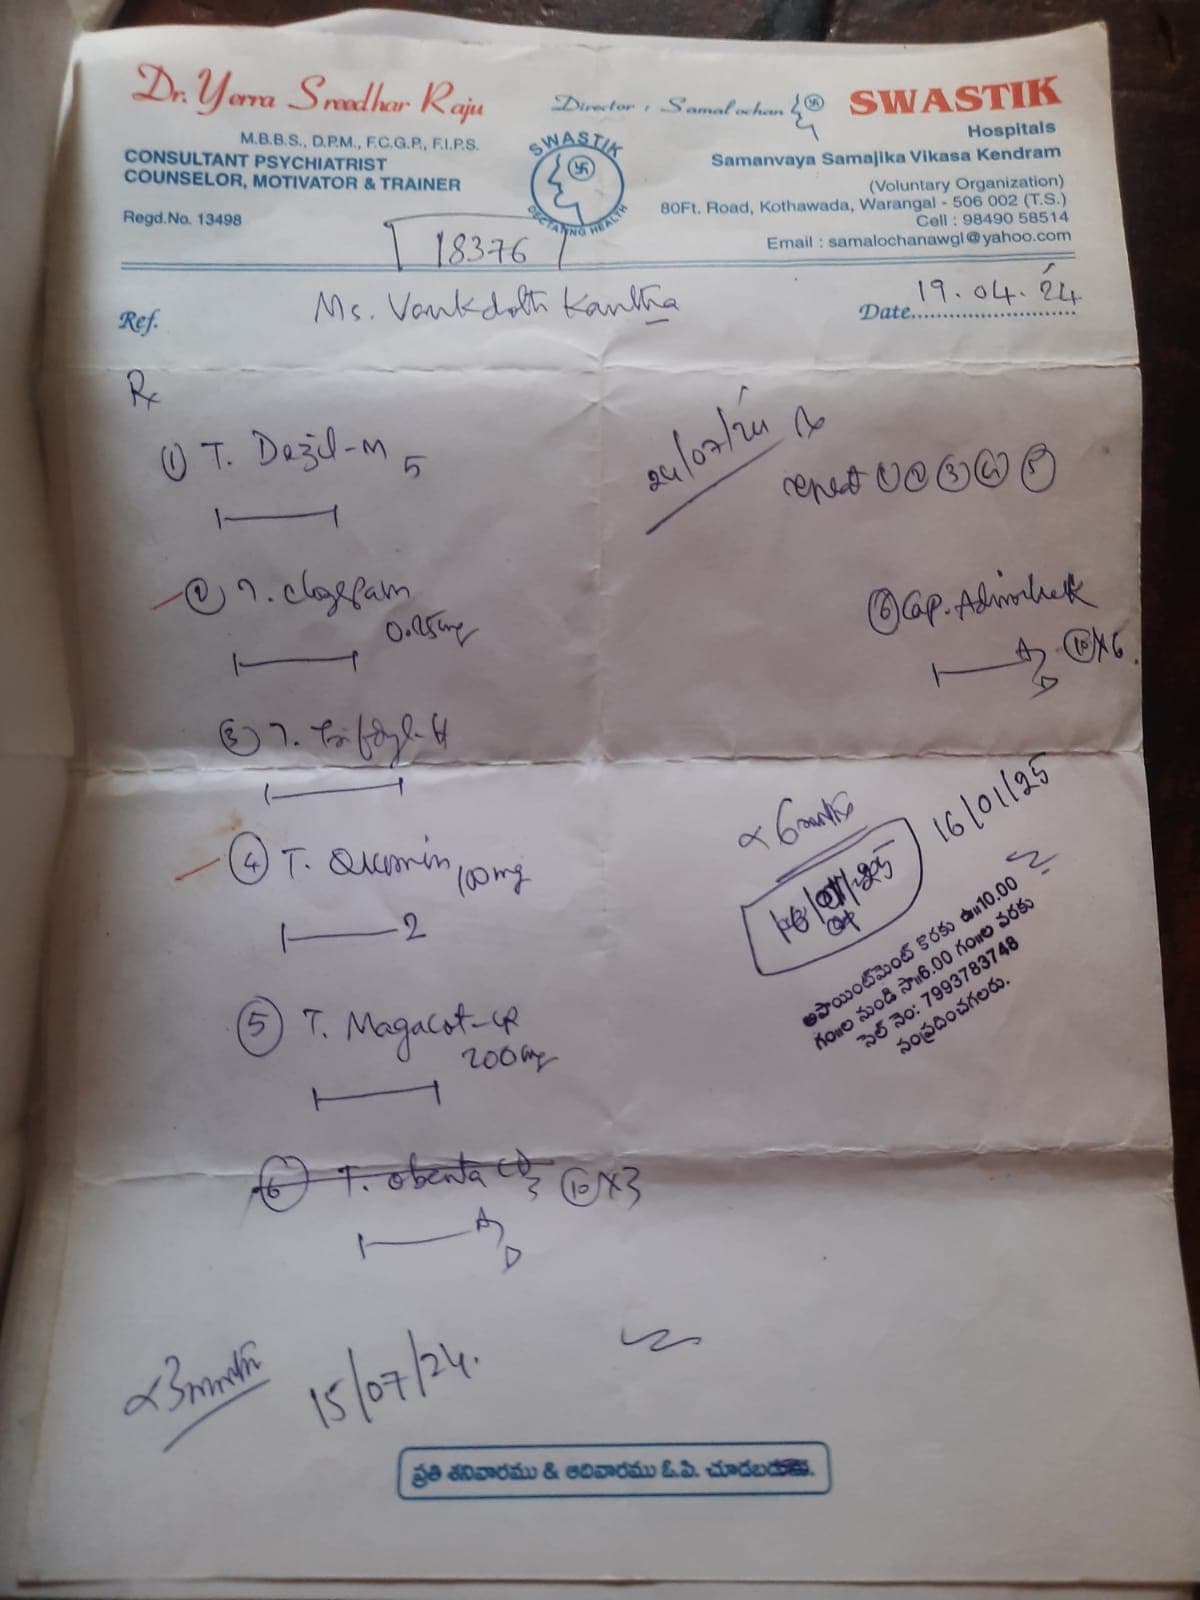 Dr. Yerra Sreedhar Raju
M.B.B.S., D.P.M., F.C.G.P., F.I.P.S.
CONSULTANT PSYCHIATRIST
COUNSELOR, MOTIVATOR & TRAINER
Regd.No. 13498
Director : Samalochan
SWASTIK
DECTATING HEALTH
SWASTIK
Hospitals
Samanvaya Samajika Vikasa Kendram
(Voluntary Organization)
80Ft. Road, Kothawada, Warangal - 506 002 (T.S.)
Cell : 98490 58514
Email : samalochanawgl@yahoo.com
18376
Ref.
Ms. Vankdoth Kantha
Date 19.04.24
Rx
① T. Dezil-M 5
② T. clozepam
0.25mg
③ T.
④ T. Qumin 100mg
2
⑤ T. Magacot-CR
200mg
⑥ T. ⑩×3
A
D
× 3 months
15/07/24.
24/07/24 Rx
repeat ① ② ③ ④ ⑤
⑥ Cap.
A
D
⑩×6.
× 6 months
16/01/25
అపాయింట్‌మెంట్ కొరకు ఉ॥10.00
గం॥ల నుండి సా॥6.00 గం॥ల వరకు
సెల్ నెం: 7993783748
సంప్రదించగలరు.
ప్రతి శనివారము & ఆదివారము ఓ.పి.